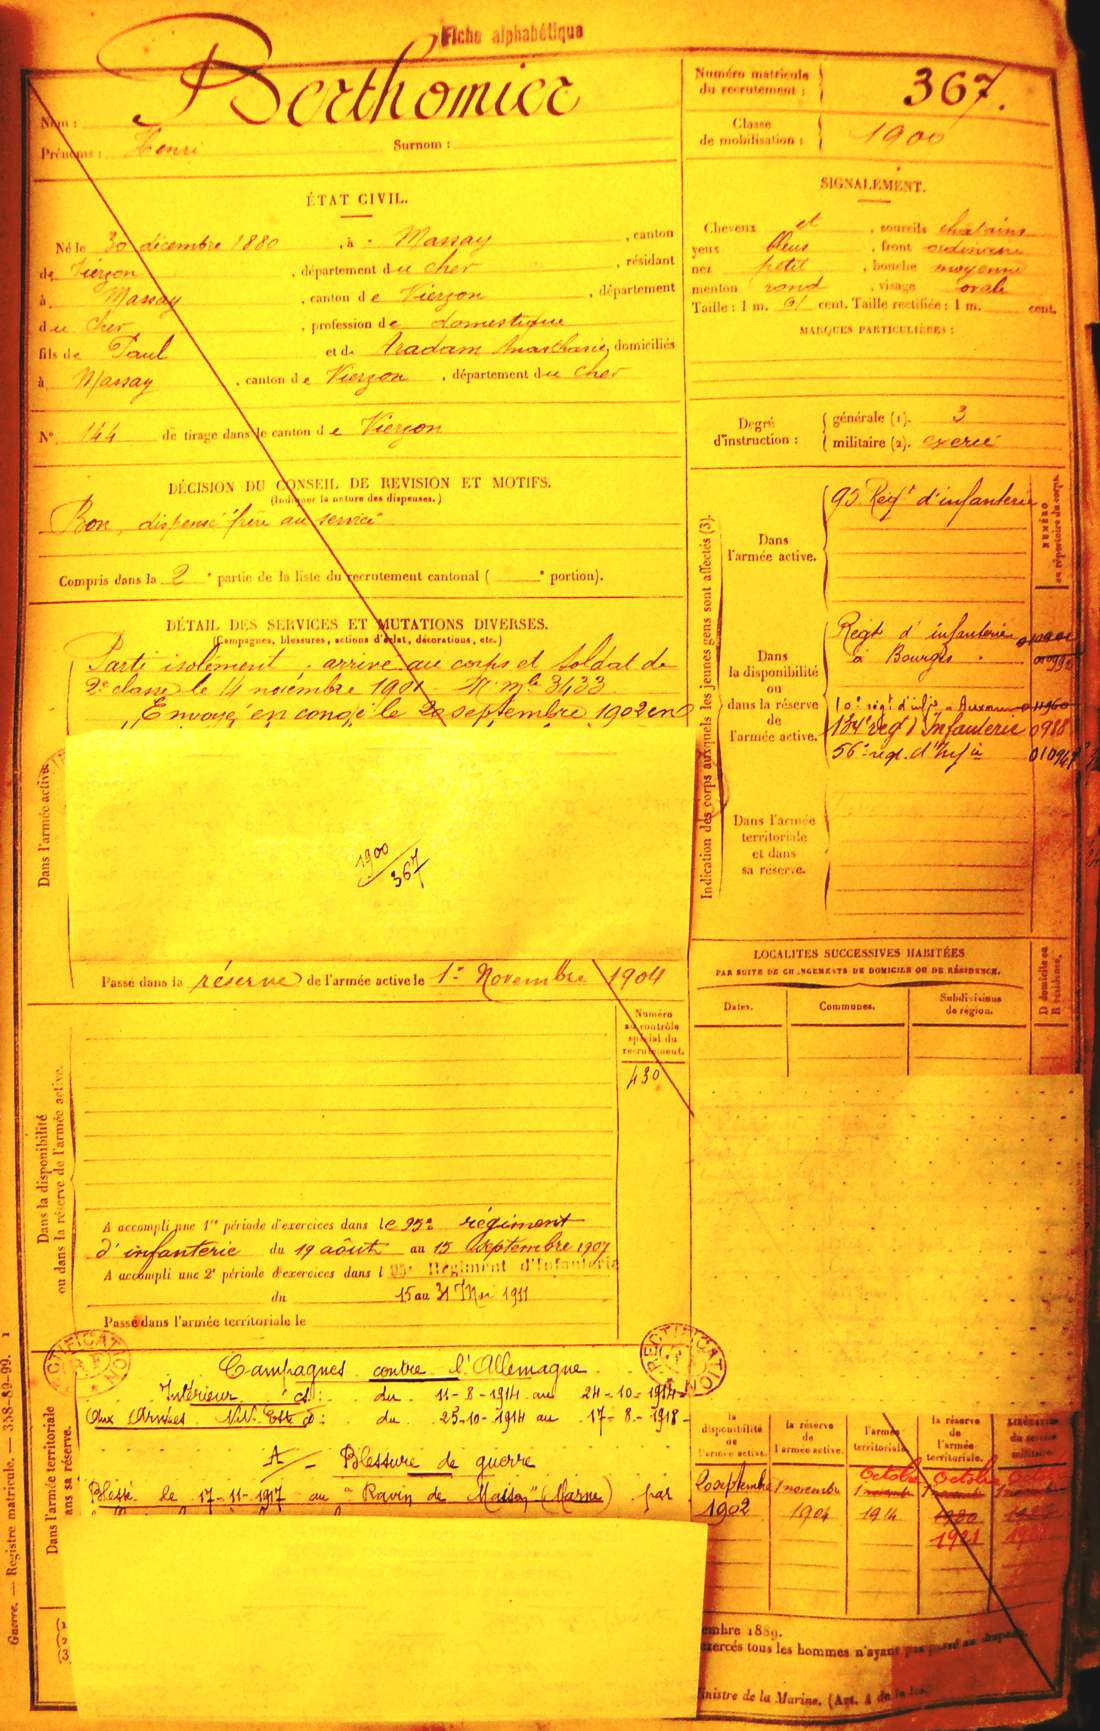 Fiche alphabétique
Nom : Berthomier
Prénoms : Henri Surnom :
Numéro matricule du recrutement : 367.
Classe de mobilisation : 1900
ÉTAT CIVIL.
Né le 30 décembre 1880, à Massay, canton
de Vierzon, département du Cher, résidant
à Massay, canton de Vierzon, département
du Cher, profession de domestique
fils de Paul et de domiciliés
à Massay, canton de Vierzon, département du Cher
N° 144 de tirage dans le canton de Vierzon
DÉCISION DU CONSEIL DE REVISION ET MOTIFS.
(Indiquer la nature des dispenses.)
Bon, dispensé frère au service
Compris dans la 2e partie de la liste du recrutement cantonal ( e portion).
DÉTAIL DES SERVICES ET MUTATIONS DIVERSES.
(Campagnes, blessures, actions d'éclat, décorations, etc.)
Parti isolément. arrivé au corps et soldat de
2e classe le 14 novembre 1901. Nº mle 3433
Envoyé en congé le 20 septembre 1902 en
Dans l'armée active.
1900
367
Passé dans la réserve de l'armée active le 1er Novembre 1904
Numéro au contrôle spécial du recrutement.
430
Dans la disponibilité ou dans la réserve de l'armée active.
A accompli une 1re période d'exercices dans le 95e régiment
d'infanterie du 19 août au 15 septembre 1907
A accompli une 2e période d'exercices dans l 95e Régiment d'Infanterie
du 15 au 31 Mai 1911
Passé dans l'armée territoriale le
RECTIFICATION
RECTIFICATION
Campagnes contre l'Allemagne
Intérieur cs : du 11-8-1914 au 24-10-1914-
Aux Armées N.N. Est : du 25-10-1914 au 17-8-1918-
A/- Blessure de guerre
Blessé le 17-11-1917 au "Ravin de Massay" (Marne) par
Dans l'armée territoriale
ans sa réserve.
SIGNALEMENT.
Cheveux et, sourcils chatains
yeux bleus, front ordinaire
nez petit, bouche moyenne
menton rond, visage ovale
Taille : 1 m. 61 cent. Taille rectifiée : 1 m. cent.
MARQUES PARTICULIÈRES :
Degré d'instruction : générale (1). 3
militaire (2). exercé
Indication des corps auxquels les jeunes gens sont affectés (3).
NUMÉRO au répertoire du corps.
Dans l'armée active.
95. Regt d'infanterie
Dans la disponibilité ou dans la réserve de l'armée active.
Regt d'infanterie
à Bourges
10e régt d'infie Auxonne
134e regt d'Infanterie 0988
56e régt. d'Infie
Dans l'armée territoriale et dans sa réserve.
LOCALITES SUCCESSIVES HABITÉES
PAR SUITE DE CHANGEMENTS DE DOMICILE OU DE RÉSIDENCE.
Dates. Communes. Subdivisions de région. D domicile ou R résidence.
la disponibilité de l'armée active. la réserve de l'armée active. l'armée territoriale. la réserve de l'armée territoriale.
20 septembre 1902
1 novembre 1904
Octobre 1914
Octobre 1921
embre 1889.
exercés tous les hommes n'ayant pas passé
Ministre de la Marine. (Art. 4 de la loi
Guerre. — Registre matricule. — 358-89-99. 1
(1
(2
(3